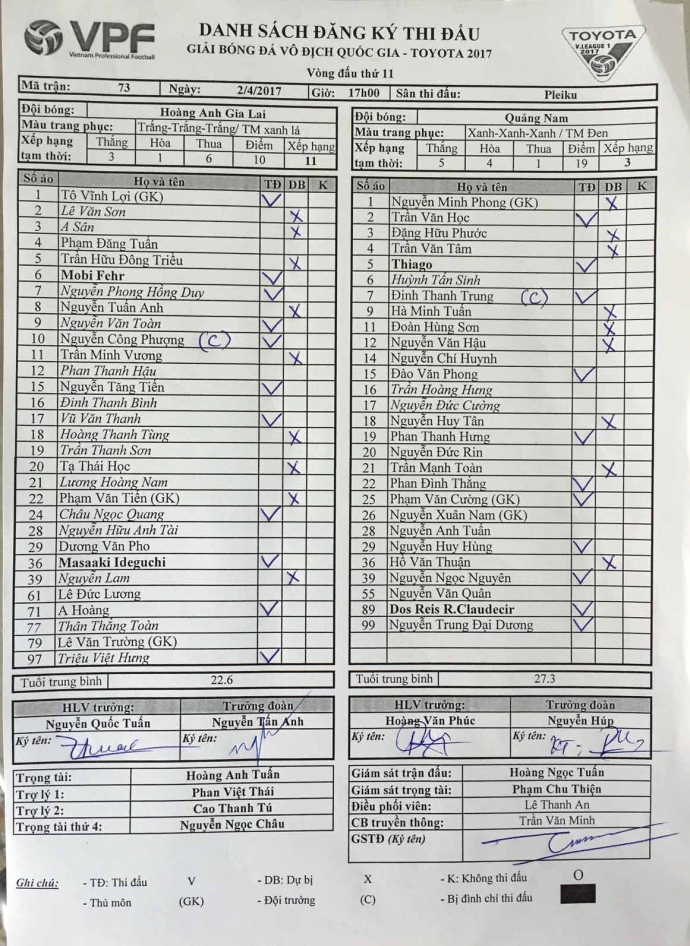 VPF
Vietnam Professional Football
DANH SÁCH ĐĂNG KÝ THI ĐẤU
GIẢI BÓNG ĐÁ VÔ ĐỊCH QUỐC GIA - TOYOTA 2017
TOYOTA
V.LEAGUE 1
2017
Vòng đấu thứ 11
Mã trận: 73 Ngày: 2/4/2017 Giờ: 17h00 Sân thi đấu: Pleiku
Đội bóng: Hoàng Anh Gia Lai
Màu trang phục: Trắng-Trắng-Trắng/ TM xanh lá
Xếp hạng tạm thời: Thắng Hòa Thua Điểm Xếp hạng
3 1 6 10 11
Số áo Họ và tên TĐ DB K
1 Tô Vĩnh Lợi (GK) V
2 Lê Văn Sơn X
3 A Sân X
4 Phạm Đăng Tuấn
5 Trần Hữu Đông Triều X
6 Mobi Fehr V
7 Nguyễn Phong Hồng Duy V
8 Nguyễn Tuấn Anh X
9 Nguyễn Văn Toàn V
10 Nguyễn Công Phượng (C) V
11 Trần Minh Vương X
12 Phan Thanh Hậu
15 Nguyễn Tăng Tiến V
16 Đinh Thanh Bình
17 Vũ Văn Thanh V
18 Hoàng Thanh Tùng X
19 Trần Thanh Sơn
20 Tạ Thái Học X
21 Lương Hoàng Nam
22 Phạm Văn Tiến (GK) X
24 Châu Ngọc Quang V
28 Nguyễn Hữu Anh Tài
29 Dương Văn Pho
36 Masaaki Ideguchi V
39 Nguyễn Lam X
61 Lê Đức Lương
71 A Hoàng V
77 Thân Thắng Toàn
79 Lê Văn Trường (GK)
97 Triệu Việt Hưng V
Tuổi trung bình 22.6
HLV trưởng: Trưởng đoàn
Nguyễn Quốc Tuấn Nguyễn Tấn Anh
Ký tên: Ký tên:
Trọng tài: Hoàng Anh Tuấn
Trợ lý 1: Phan Việt Thái
Trợ lý 2: Cao Thanh Tú
Trọng tài thứ 4: Nguyễn Ngọc Châu
Đội bóng: Quảng Nam
Màu trang phục: Xanh-Xanh-Xanh / TM Đen
Xếp hạng tạm thời: Thắng Hòa Thua Điểm Xếp hạng
5 4 1 19 3
Số áo Họ và tên TĐ DB K
1 Nguyễn Minh Phong (GK) X
2 Trần Văn Học V
3 Đặng Hữu Phước X
4 Trần Văn Tâm X
5 Thiago V
6 Huỳnh Tấn Sinh
7 Đinh Thanh Trung (C) V
9 Hà Minh Tuấn X
11 Đoàn Hùng Sơn X
12 Nguyễn Văn Hậu X
14 Nguyễn Chí Huynh
15 Đào Văn Phong V
16 Trần Hoàng Hưng
17 Nguyễn Đức Cường
18 Nguyễn Huy Tân X
19 Phan Thanh Hưng V
20 Nguyễn Đức Rin
21 Trần Mạnh Toàn X
22 Phan Đình Thắng V
25 Phạm Văn Cường (GK) V
26 Nguyễn Xuân Nam (GK)
28 Nguyễn Anh Tuấn
29 Nguyễn Huy Hùng V
36 Hồ Văn Thuận X
39 Nguyễn Ngọc Nguyên V
55 Nguyễn Văn Quân
89 Dos Reis R.Claudecir V
99 Nguyễn Trung Đại Dương V
Tuổi trung bình 27.3
HLV trưởng: Trưởng đoàn
Hoàng Văn Phúc Nguyễn Húp
Ký tên: Ký tên:
Giám sát trận đấu: Hoàng Ngọc Tuấn
Giám sát trọng tài: Phạm Chu Thiện
Điều phối viên: Lê Thanh An
CB truyền thông: Trần Văn Minh
GSTĐ (Ký tên)
Ghi chú: - TĐ: Thi đấu V - DB: Dự bị X - K: Không thi đấu O
- Thủ môn (GK) - Đội trưởng (C) - Bị đình chỉ thi đấu